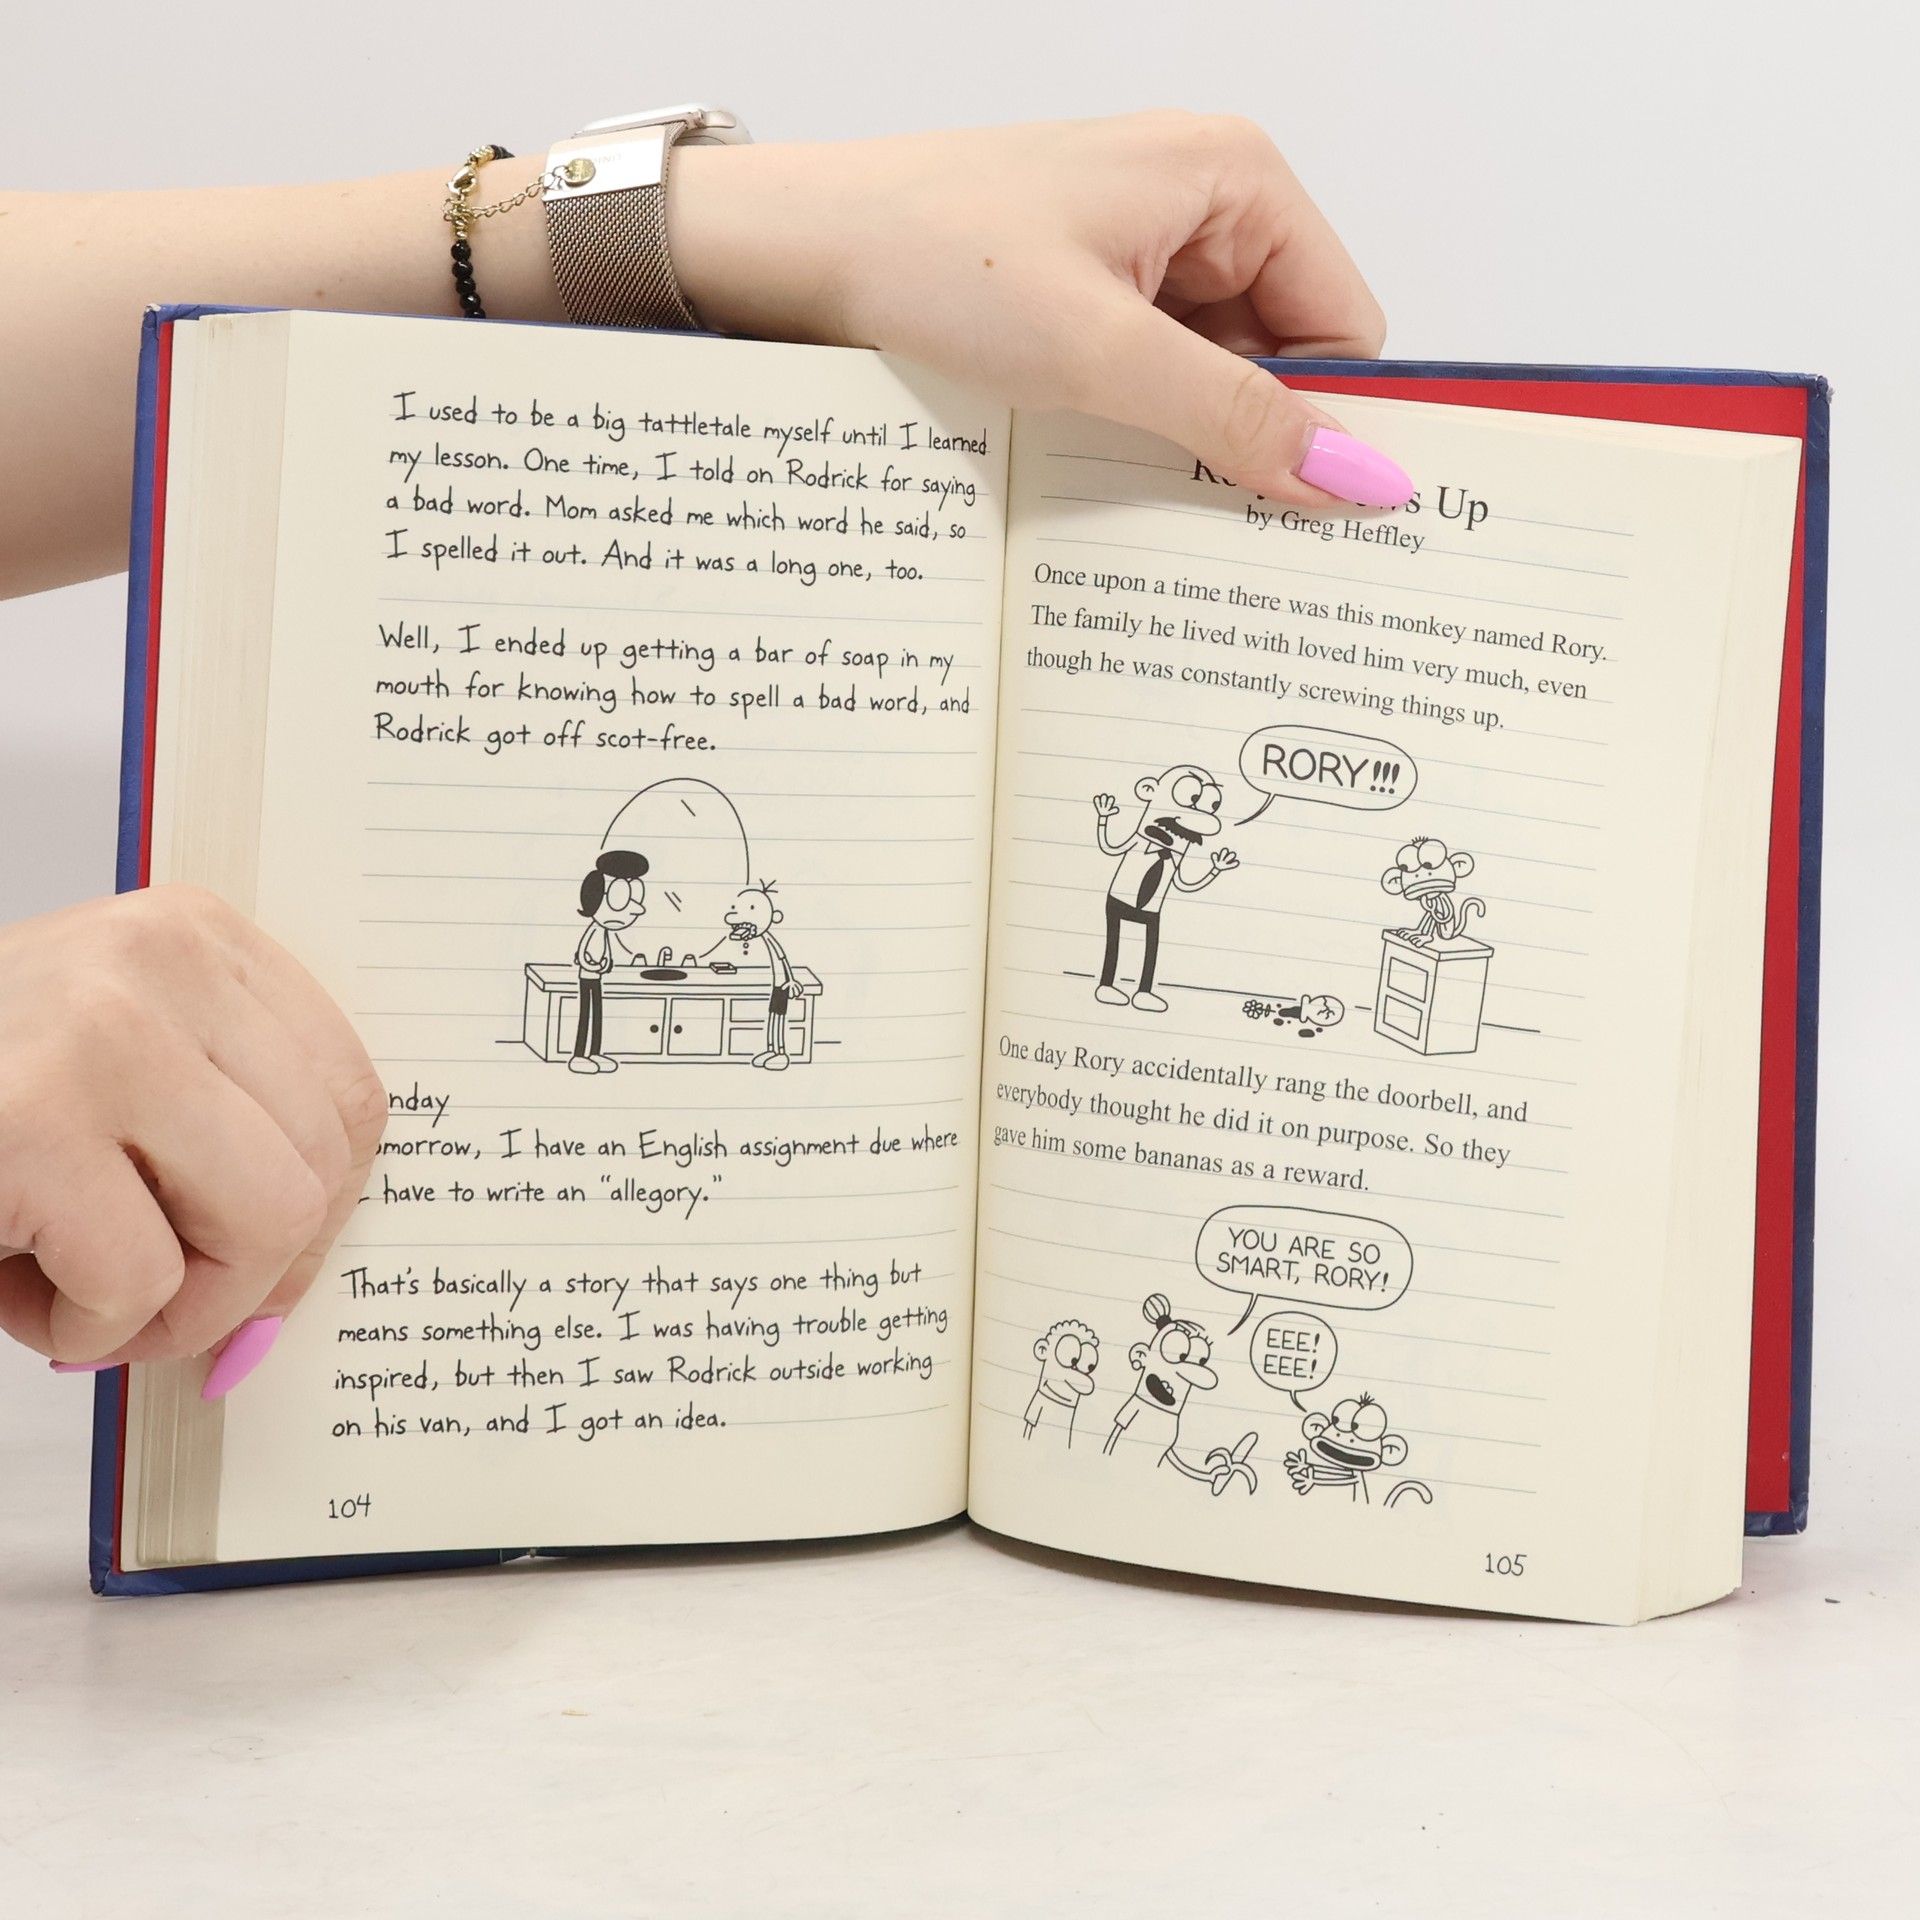 I used to be a big tattletale myself until I learned
my lesson. One time, I told on Rodrick for saying
a bad word. Mom asked me which word he said, so
I spelled it out. And it was a long one, too.
Well, I ended up getting a bar of soap in my
mouth for knowing how to spell a bad word, and
Rodrick got off scot-free.
nday
omorrow, I have an English assignment due where
I have to write an "allegory."
That's basically a story that says one thing but
means something else. I was having trouble getting
inspired, but then I saw Rodrick outside working
on his van, and I got an idea.
104
Up
by Greg Heffley
Once upon a time there was this monkey named Rory.
The family he lived with loved him very much, even
though he was constantly screwing things up.
RORY!!!
One day Rory accidentally rang the doorbell, and
everybody thought he did it on purpose. So they
gave him some bananas as a reward.
YOU ARE SO
SMART, RORY!
EEE!
EEE!
105